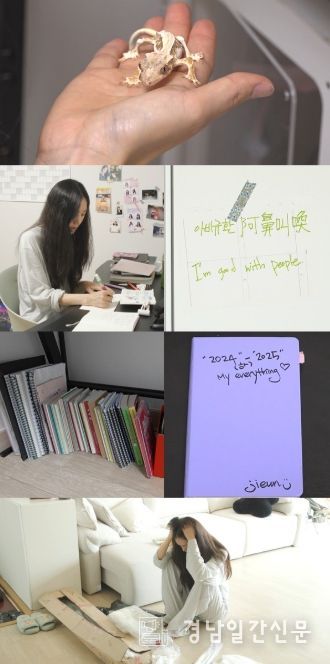 아비규환 阿鼻叫喚
I'm good with people
"2024" - "2025"
My everything ♡
jieun
경남일간신문